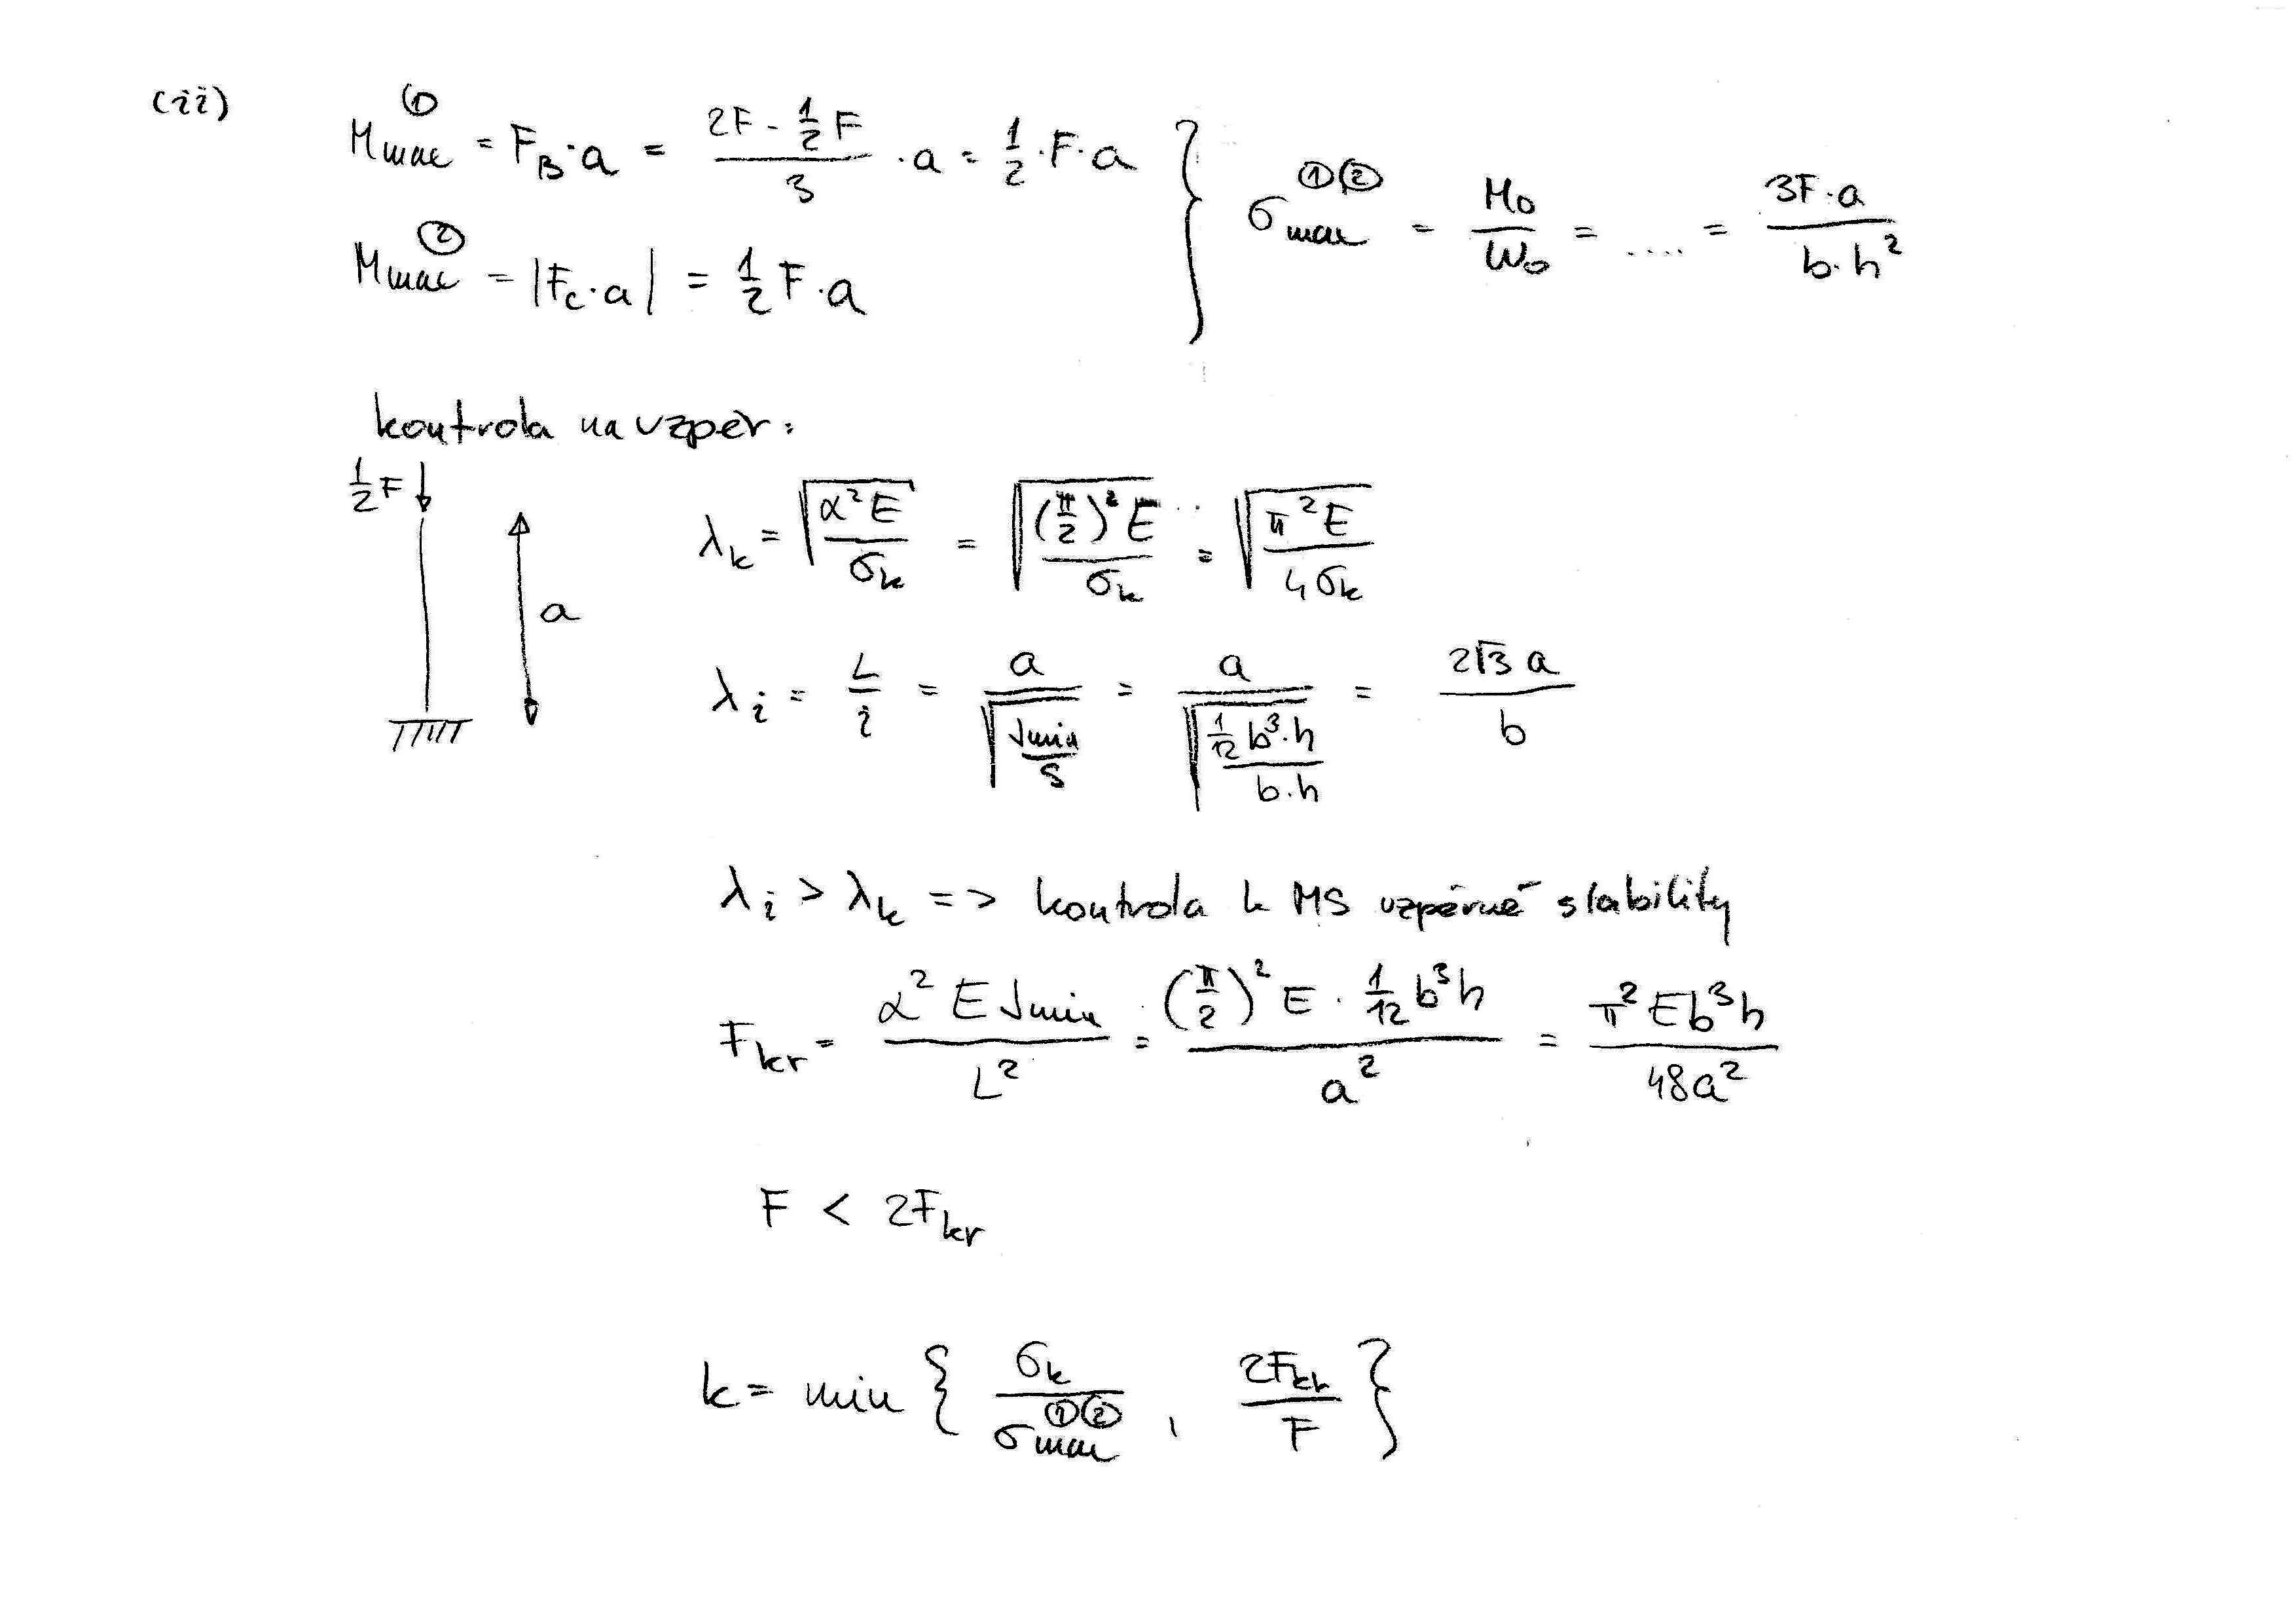 (ii)
Mmax ① = F_B · a = (2F - 1/2 F)/3 · a = 1/2 · F · a
Mmax ② = |F_C · a| = 1/2 F · a
σmax ①② = Mo/Wo = .... = 3F·a/(b·h²)
kontrola na vzpěr:
1/2 F
a
λ_k = √(α²E/σ_k) = √((π/2)²E/σ_k) = √(π²E/4σ_k)
λ_i = L/i = a/√(Jmin/S) = a/√(1/12 b³·h/(b·h)) = 2√3 a/b
λ_i > λ_k => kontrola k MS vzpěrné stability
F_kr = α² E Jmin/L² = (π/2)² E · 1/12 b³h/a² = π² E b³h/48a²
F < 2F_kr
k = min { σ_k/σmax ①② , 2F_kr/F }